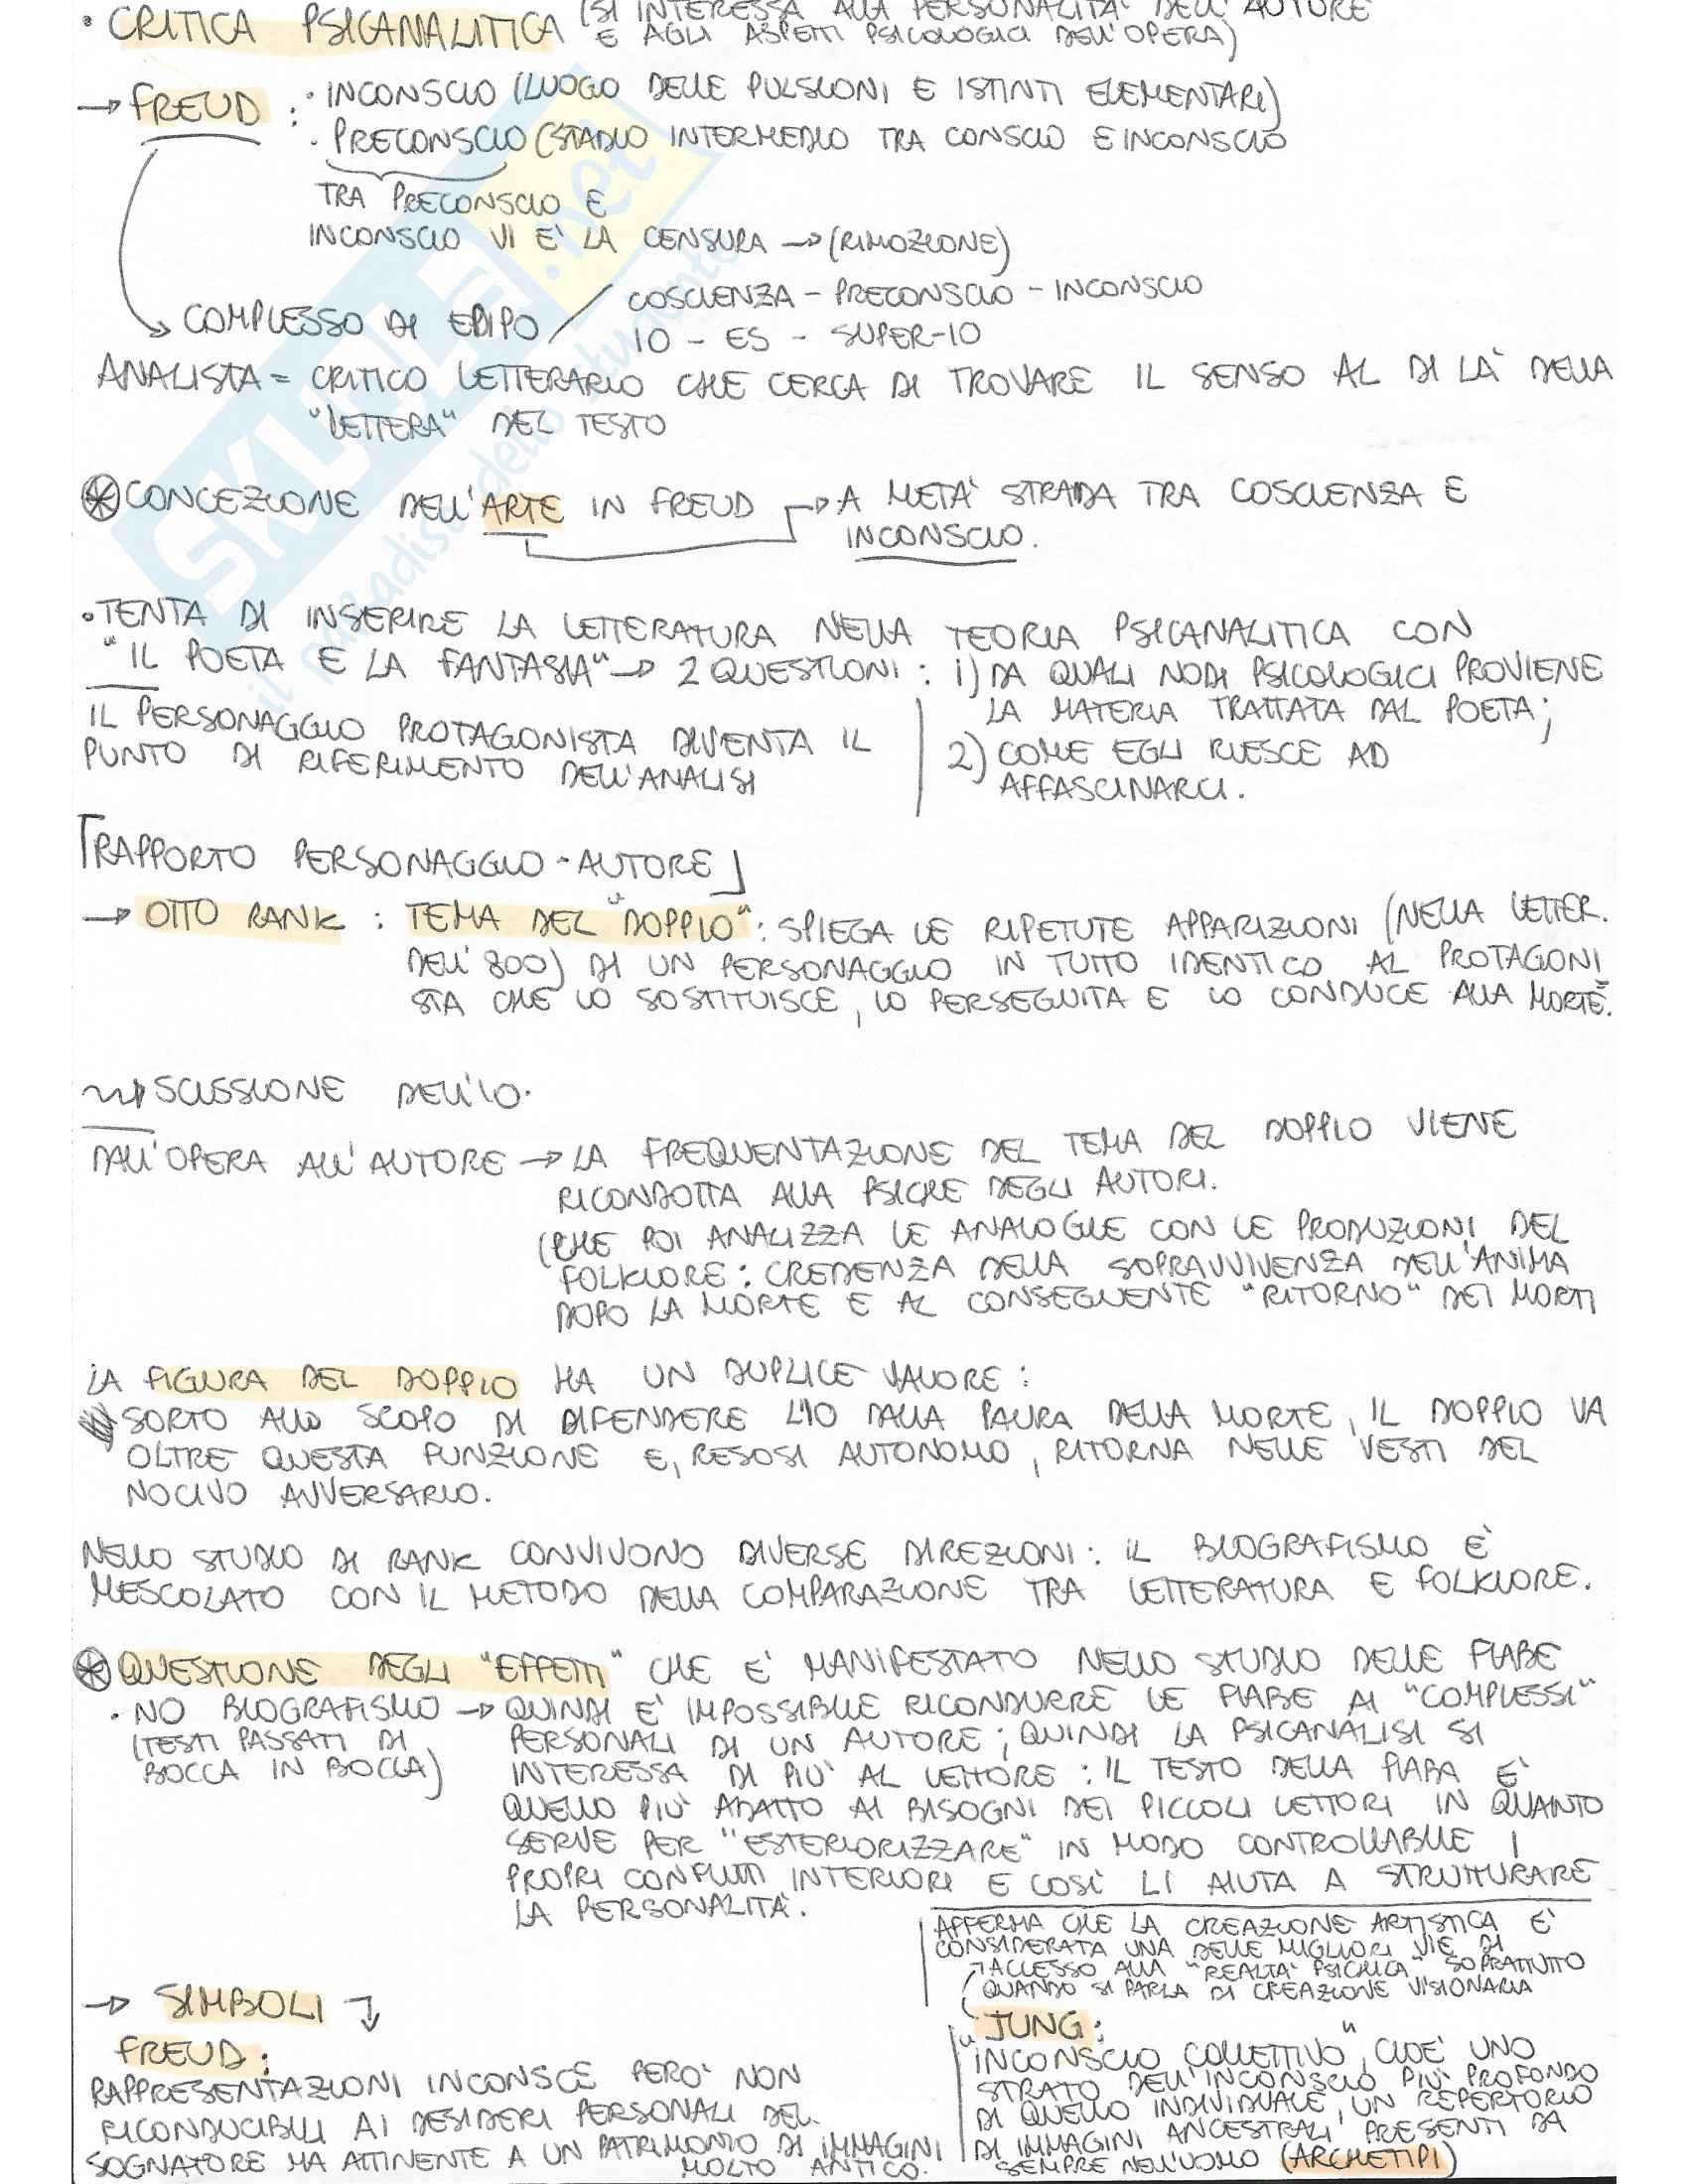 • CRITICA PSICANALITICA (SI INTERESSA ALLA PERSONALITA' DELL'AUTORE
E AGLI ASPETTI PSICOLOGICI DELL'OPERA)
→ FREUD : · INCONSCIO (LUOGO DELLE PULSIONI E ISTINTI ELEMENTARI)
· PRECONSCIO (STADIO INTERMEDIO TRA CONSCIO E INCONSCIO
TRA PRECONSCIO E
INCONSCIO VI E' LA CENSURA → (RIMOZIONE)
COSCIENZA - PRECONSCIO - INCONSCIO
COMPLESSO DI EDIPO / IO - ES - SUPER-IO
ANALISTA = CRITICO LETTERARIO CHE CERCA DI TROVARE IL SENSO AL DI LA' DELLA
"LETTERA" DEL TESTO
CONCEZIONE DELL'ARTE IN FREUD → A META' STRADA TRA COSCIENZA E
INCONSCIO.
• TENTA DI INSERIRE LA LETTERATURA NELLA TEORIA PSICANALITICA CON
"IL POETA E LA FANTASIA" → 2 QUESTIONI : 1) DA QUALI NODI PSICOLOGICI PROVIENE
LA MATERIA TRATTATA DAL POETA;
2) COME EGLI RIESCE AD
AFFASCINARCI.
IL PERSONAGGIO PROTAGONISTA DIVENTA IL
PUNTO DI RIFERIMENTO DELL'ANALISI
RAPPORTO PERSONAGGIO - AUTORE
→ OTTO RANK : TEMA DEL "DOPPIO" : SPIEGA LE RIPETUTE APPARIZIONI (NELLA LETTER.
DELL'800) DI UN PERSONAGGIO IN TUTTO IDENTICO AL PROTAGONI
STA CHE LO SOSTITUISCE, LO PERSEGUITA E LO CONDUCE ALLA MORTE.
SCISSIONE DELL'IO.
DALL'OPERA ALL'AUTORE → LA FREQUENTAZIONE DEL TEMA DEL DOPPIO VIENE
RICONDOTTA ALLA PSICHE DEGLI AUTORI.
(CHE POI ANALIZZA LE ANALOGIE CON LE PRODUZIONI DEL
FOLKLORE : CREDENZA DELLA SOPRAVVIVENZA DELL'ANIMA
DOPO LA MORTE E AL CONSEGUENTE "RITORNO" DEI MORTI
LA FIGURA DEL DOPPIO HA UN DUPLICE VALORE :
SORTO ALLO SCOPO DI DIFENDERE L'IO DALLA PAURA DELLA MORTE, IL DOPPIO VA
OLTRE QUESTA FUNZIONE E, RESOSI AUTONOMO, RITORNA NELLE VESTI DEL
NOCIVO AVVERSARIO.
NELLO STUDIO DI RANK CONVIVONO DIVERSE DIREZIONI : IL BIOGRAFISMO È
MESCOLATO CON IL METODO DELLA COMPARAZIONE TRA LETTERATURA E FOLKLORE.
QUESTIONE DEGLI "EFFETTI" CHE E' MANIFESTATO NELLO STUDIO DELLE FIABE
• NO BIOGRAFISMO → QUINDI E' IMPOSSIBILE RICONDURRE LE FIABE AI "COMPLESSI"
(TESTI PASSATI DI
BOCCA IN BOCCA)
PERSONALI DI UN AUTORE ; QUINDI LA PSICANALISI SI
INTERESSA DI PIU' AL LETTORE : IL TESTO DELLA FIABA E'
QUELLO PIU' ADATTO AI BISOGNI DEI PICCOLI LETTORI IN QUANTO
SERVE PER "ESTERIORIZZARE" IN MODO CONTROLLABILE I
PROPRI CONFLITTI INTERIORI E COSI' LI AIUTA A STRUTTURARE
LA PERSONALITA'.
AFFERMA CHE LA CREAZIONE ARTISTICA E'
CONSIDERATA UNA DELLE MIGLIORI VIE DI
ACCESSO ALLA "REALTA' PSICHICA" SOPRATTUTTO
QUANDO SI PARLA DI CREAZIONE VISIONARIA
→ SIMBOLI
FREUD :
RAPPRESENTAZIONI INCONSCE PERO' NON
RICONDUCIBILI AI DESIDERI PERSONALI DEL
SOGNATORE MA ATTINENTE A UN PATRIMONIO DI IMMAGINI
MOLTO ANTICO.
JUNG :
"INCONSCIO COLLETTIVO", CIOE' UNO
STRATO DELL'INCONSCIO PIU' PROFONDO
DI QUELLO INDIVIDUALE, UN REPERTORIO
DI IMMAGINI ANCESTRALI PRESENTI DA
SEMPRE NELL'UOMO (ARCHETIPI)
SKUOLA.net
il paradiso dello studente